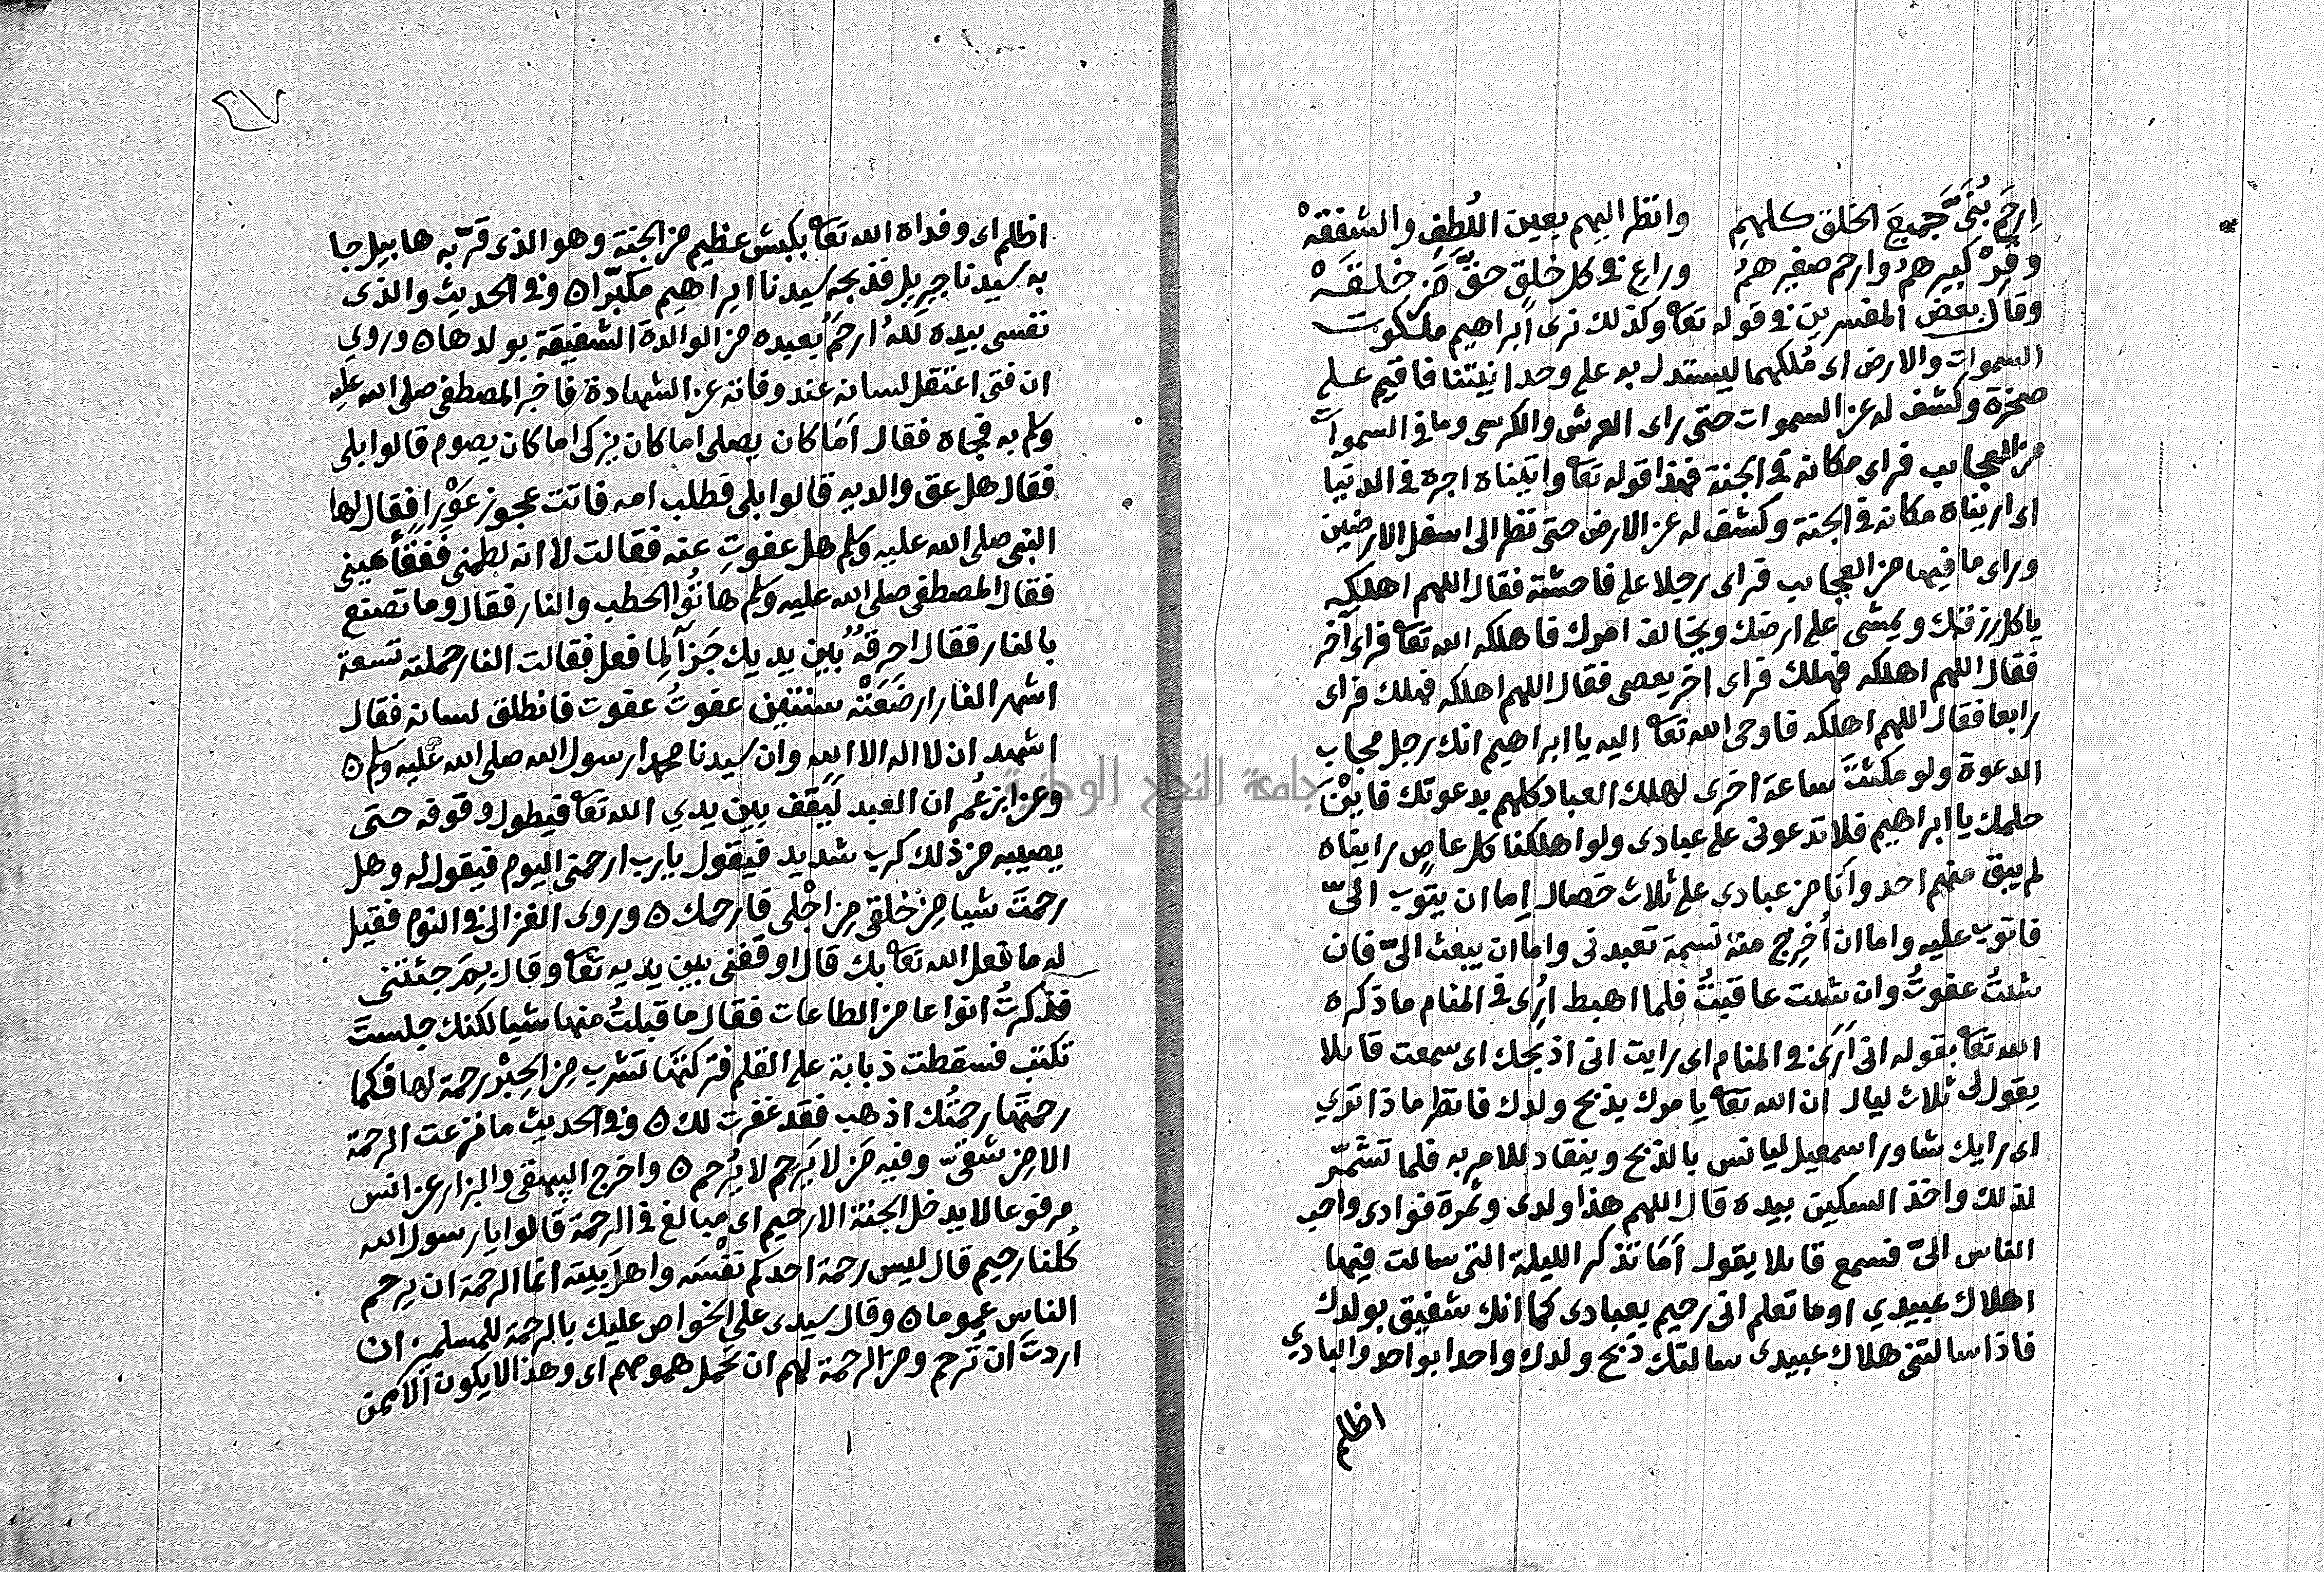 اِرحَم بُنَيَّ جَميعَ الخلق كلهمِ وانظر اليهم بعين اللُطفِ والشفقهْ
وقِّرْ كبيرهمُ وارحم صغيرهمُ وراعِ في كل خلقٍ حقَّ مَن خلقَهْ
وقال بعض المفسرين في قوله تعا وكذلك نرى ابراهيم ملكوت
السموات والارض اى مُلكهما ليستدل به على وحدانيتنا فاقيم على
صخرة وكشف له عن السموات حتى راى العرش والكرسى وما في السموات
من العجايب فراى مكانه في الجنة فهذا قوله تعا واتيناه اجره في الدنيا
اى اريناه مكانه في الجنة وكشف له عن الارض حتى نظر الى اسفل الارضين
وراى ما فيها من العجايب فراى رجلا على فاحشة فقال اللهم اهلكه
ياكل رزقك ويمشى على ارضك ويخالف امرك فاهلكه الله تعا فراى آخر
فقال اللهم اهلكه فهلك فراى اخر يعصى فقال اللهم اهلكه فهلك فراى
رابعا فقال اللهم اهلكه فاوحى الله تعا اليه يا ابراهيم انك رجل مجاب
الدعوة ولو مكثتَ ساعة اخرى لهلك العباد كلهم بدعوتك فاَيْنَ
حلمك يا ابراهيم فلا تدعونى على عبادى ولو اهلكنا كل عاصٍ رايناه
لم يبق منهم احد وانَا من عبادى على ثلاث خصال اِما ان يتوب الىّ
فاتوب عليه واما ان اُخرِج منه نسمة تعبدنى واما ان يبعث الىّ فان
شئتُ عفوتُ وان شئت عاقبتُ فلما اهبط اُرِى في المنام ما ذكره
الله تعا بقوله انى اَرَى في المنام اى رايت انى اذبحك اى سمعت قايلا
يقول لى ثلاث ليال ان الله تعا يامرك بذبح ولدك فانظر ماذا ترى
اى رايك شاور اسمعيل ليانس بالذبح وينقاد للامر به فلما تشمّر
لذلك واخذ السكين بيده قال اللهم هذا ولدى وثمرة فوادى واحب
الناس الىّ فسمع قايلا يقول اَمَا تذكر الليلة التى سالت فيها
اهلاك عبيدي اوما تعلم انى رحيم بعبادى كما انك شفيق بولدك
فاذا سالتنى هلاك عبيدى سالتك ذبح ولدك واحدا بواحد والبادي
اظلم
٢٧
اظلم اى وفداه الله تعا بكبش عظيم من الجنة وهو الذى قرّبه هابيل جا
به سيدنا جبريل فذبحه سيدنا ابراهيم مكبّرا ه وفي الحديث والذى
نفسى بيده للهُ ارحَمُ بعبده من الوالدة الشفيقة بولدها ه وروي
ان فتى اعتقل لسانه عند وفاته عن الشهادة فاخبر المصطفى صلى الله عليه
وسلم به فجاه فقال اَمَا كان يصلى اما كان يزكى اما كان يصوم قالوا بلى
فقال هل عق والديه قالوا بلى فطلب امه فاتت عجوز عَوْرا فقال لها
النبى صلى الله عليه وسلم هل عفوتِ عنه فقالت لا انه لطمنى ففقأ عينى
فقال المصطفى صلى الله عليه وسلم هاتُوا الحطب والنار فقال وما تصنع
بالنار فقال احرقهُ بين يديك جَزآ لِما فعل فقالت النار حملته تسعة
اشهر النار ارضَعَتْه سنتين عفوتُ عفوت فانطلق لسانه فقال
اشهد ان لا اله الا الله وان سيدنا محمدا رسول الله صلى الله عليه وسلم ه
وعن ابن عُمر ان العبد لَيقف بين يدي الله تعا فيطول وقوفه حتى
يصيبه من ذلك كرب شديد فيقول يا رب ارحمنى اليوم فيقول له وهل
رحمتَ شيا مِن خلقى مِن اَجْلى فارحمك ه وروى الغزالى في النوم فقيل
له ما فعل الله تعا بك قال اوقفنى بين يديه تعا وقال بِمَ جئتنى
فذكرتُ انواعا من الطاعات فقال ما قبلتُ منها شيا لكنك جلستَ
تكتب فسقطت ذبابة على القلم فتركتَها تشرب مِن الحِبْر رحمة لها فكما
رحمتَها رحمتُك اذهب فقد غفرت لك ه وفي الحديث ما نزعت الرحمة
الا مِن شقىّ وفيه مَن لا يَرحم لا يُرحم ه واخرج البيهقى والبزار عن انس
مرفوعا لا يدخل الجنة الا رحيم اى مبالغ في الرحمة قالوا يا رسول الله
كُلنا رحيم قال ليس رحمة احدكم نفْسَه واهلَ بيته انما الرحمة ان يرحم
الناس عموما ه وقال سيدى على الخواص عليك بالرحمة للمسلمين ان
اردتَ ان تُرحم ومن الرحمة لهم ان تحمل همومهم اى وهذا لا يكون الا
جامعة النجاح الوطنية